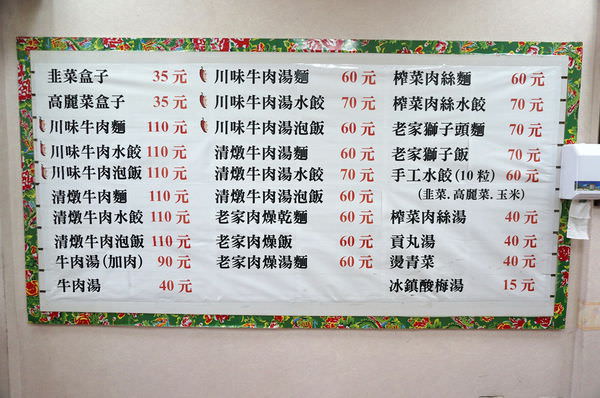 韭菜盒子 35元
高麗菜盒子 35元
川味牛肉麵 110元
川味牛肉水餃 110元
川味牛肉泡飯 110元
清燉牛肉麵 110元
清燉牛肉水餃 110元
清燉牛肉泡飯 110元
牛肉湯(加肉) 90元
牛肉湯 40元
川味牛肉湯麵 60元
川味牛肉湯水餃 70元
川味牛肉湯泡飯 60元
清燉牛肉湯麵 60元
清燉牛肉湯水餃 70元
清燉牛肉湯泡飯 60元
老家肉燥乾麵 60元
老家肉燥飯 60元
老家肉燥湯麵 60元
榨菜肉絲麵 60元
榨菜肉絲水餃 70元
老家獅子頭麵 70元
老家獅子飯 70元
手工水餃(10粒) 60元
(韭菜.高麗菜.玉米)
榨菜肉絲湯 40元
貢丸湯 40元
燙青菜 40元
冰鎮酸梅湯 15元